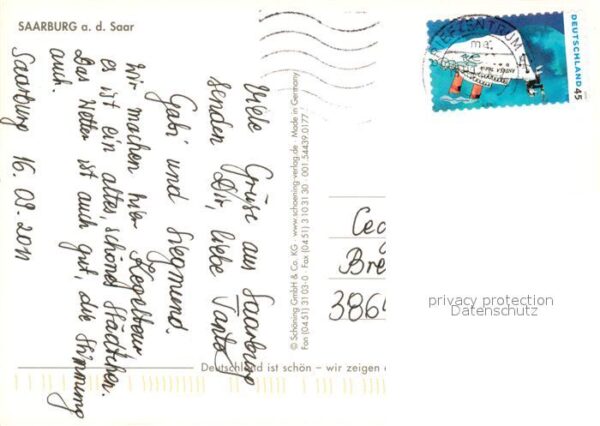 SAARBURG a. d. Saar
Viele Grüße aus Saarburg
senden Dir, liebe Tante,
Gabi und Siegmund.
Wir machen hier
es ist ein altes, schönes Städtchen.
Das Wetter ist auch gut, die Stimmung
auch.
Saarburg 16.09.2011
© Schöning GmbH & Co. KG · www.schoening-verlag.de · Made in Germany
Fon (04 51) 31 03-0 · Fax (04 51) 3 10 31 30 · 001 54439 0177
Deutschland ist schön – wir zeigen
BRIEFZENTRUM
DEUTSCHLAND 45
Bre
3864
privacy protection
Datenschutz